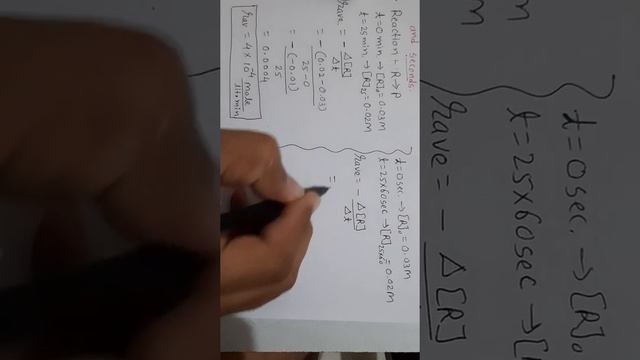 and seconds.
Reaction :- R→P
t=0 min → [R]₀ = 0.03M
t=25min → [R]₂₅ = 0.02M
rave = - Δ[R]
Δt
= - (0.02-0.03)
25-0
= - (-0.01)
25
= 0.0004
rav = 4 × 10⁻⁴ mole
ltr×min
t=0sec → [R]₀ = 0.03M
t=25×60sec → [R]₂₅ₓ₆₀ = 0.02M
rave = - Δ[R]
Δt
=